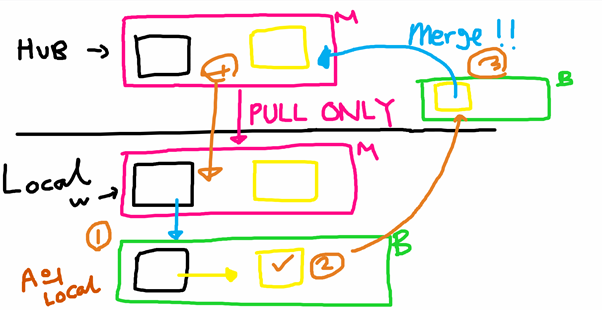 HUB → M
Merge !!
3
B
PULL ONLY
Local
W →
M
1
B
2
Local